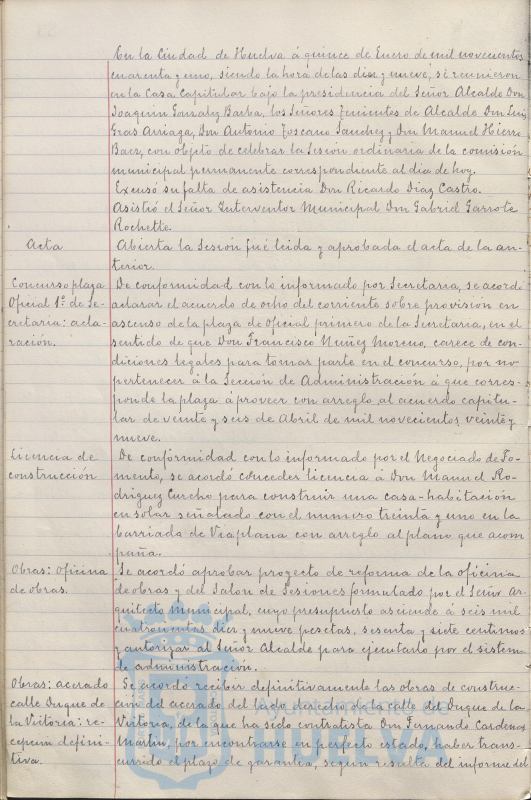 En la Ciudad de Huelva á quince de Enero de mil novecientos
cuarenta y uno, siendo la hora de las diez y nueve, se reunieron
en la Casa Capitular bajo la presidencia del Señor Alcalde Don
Joaquin Gonzalez Barba, los Señores Tenientes de Alcalde Don Luis
Gras Arriaga, Don Antonio Toscano Sanchez y Don Manuel Hierro
Baez, con objeto de celebrar la Sesión ordinaria de la comisión
municipal permanente correspondiente al dia de hoy.
Excusó su falta de asistencia Don Ricardo Diaz Castro.
Asistió el Señor Interventor Municipal Don Gabriel Garrote
Rochette.
Acta
Abierta la Sesión fué leida y aprobada el acta de la an-
terior.
Concurso plaza
Oficial 1º de Se-
cretaria: acla-
ración.
De conformidad con lo informado por Secretaria, se acordó
aclarar el acuerdo de ocho del corriente sobre provisión en
ascenso de la plaza de Oficial primero de la Secretaria, en el
sentido de que Don Francisco Nuñez Moreno, carece de con-
diciones legales para tomar parte en el concurso, por no
pertenecer á la Sección de Administración á que corres-
ponde la plaza á proveer con arreglo al acuerdo capitu-
lar de veinte y seis de Abril de mil novecientos veinte y
nueve.
Licencia de
construcción
De conformidad con lo informado por el Negociado de Fo-
mento, se acordó conceder licencia á Don Manuel Ro-
driguez Curcho para construir una casa-habitación
en solar señalado con el numero treinta y uno en la
barriada de Viaplana con arreglo al plano que acom
paña.
Obras: oficina
de obras.
Se acordó aprobar proyecto de reforma de la oficina
de obras y del Salon de Sesiones formulado por el Señor Ar-
quitecto Municipal, cuyo presupuesto asciende á seis mil
cuatrocientas diez y nueve pesetas, sesenta y siete centimos
y autorizar al Señor Alcalde para ejecutarlo por el sistema
de administración.
Obras: acerado
calle Duque de
la Victoria: re-
cepcion defini-
tiva.
Se acordó recibir definitivamente las obras de construc-
cion del acerado del lado derecho de la calle del Duque de la
Victoria, de la que ha sido contratista Don Fernando Cardenas
Martin, por encontrarse en perfecto estado, haber trans-
currido el plazo de garantia, segun resulta del informe del
Ayuntamiento de
HUELVA